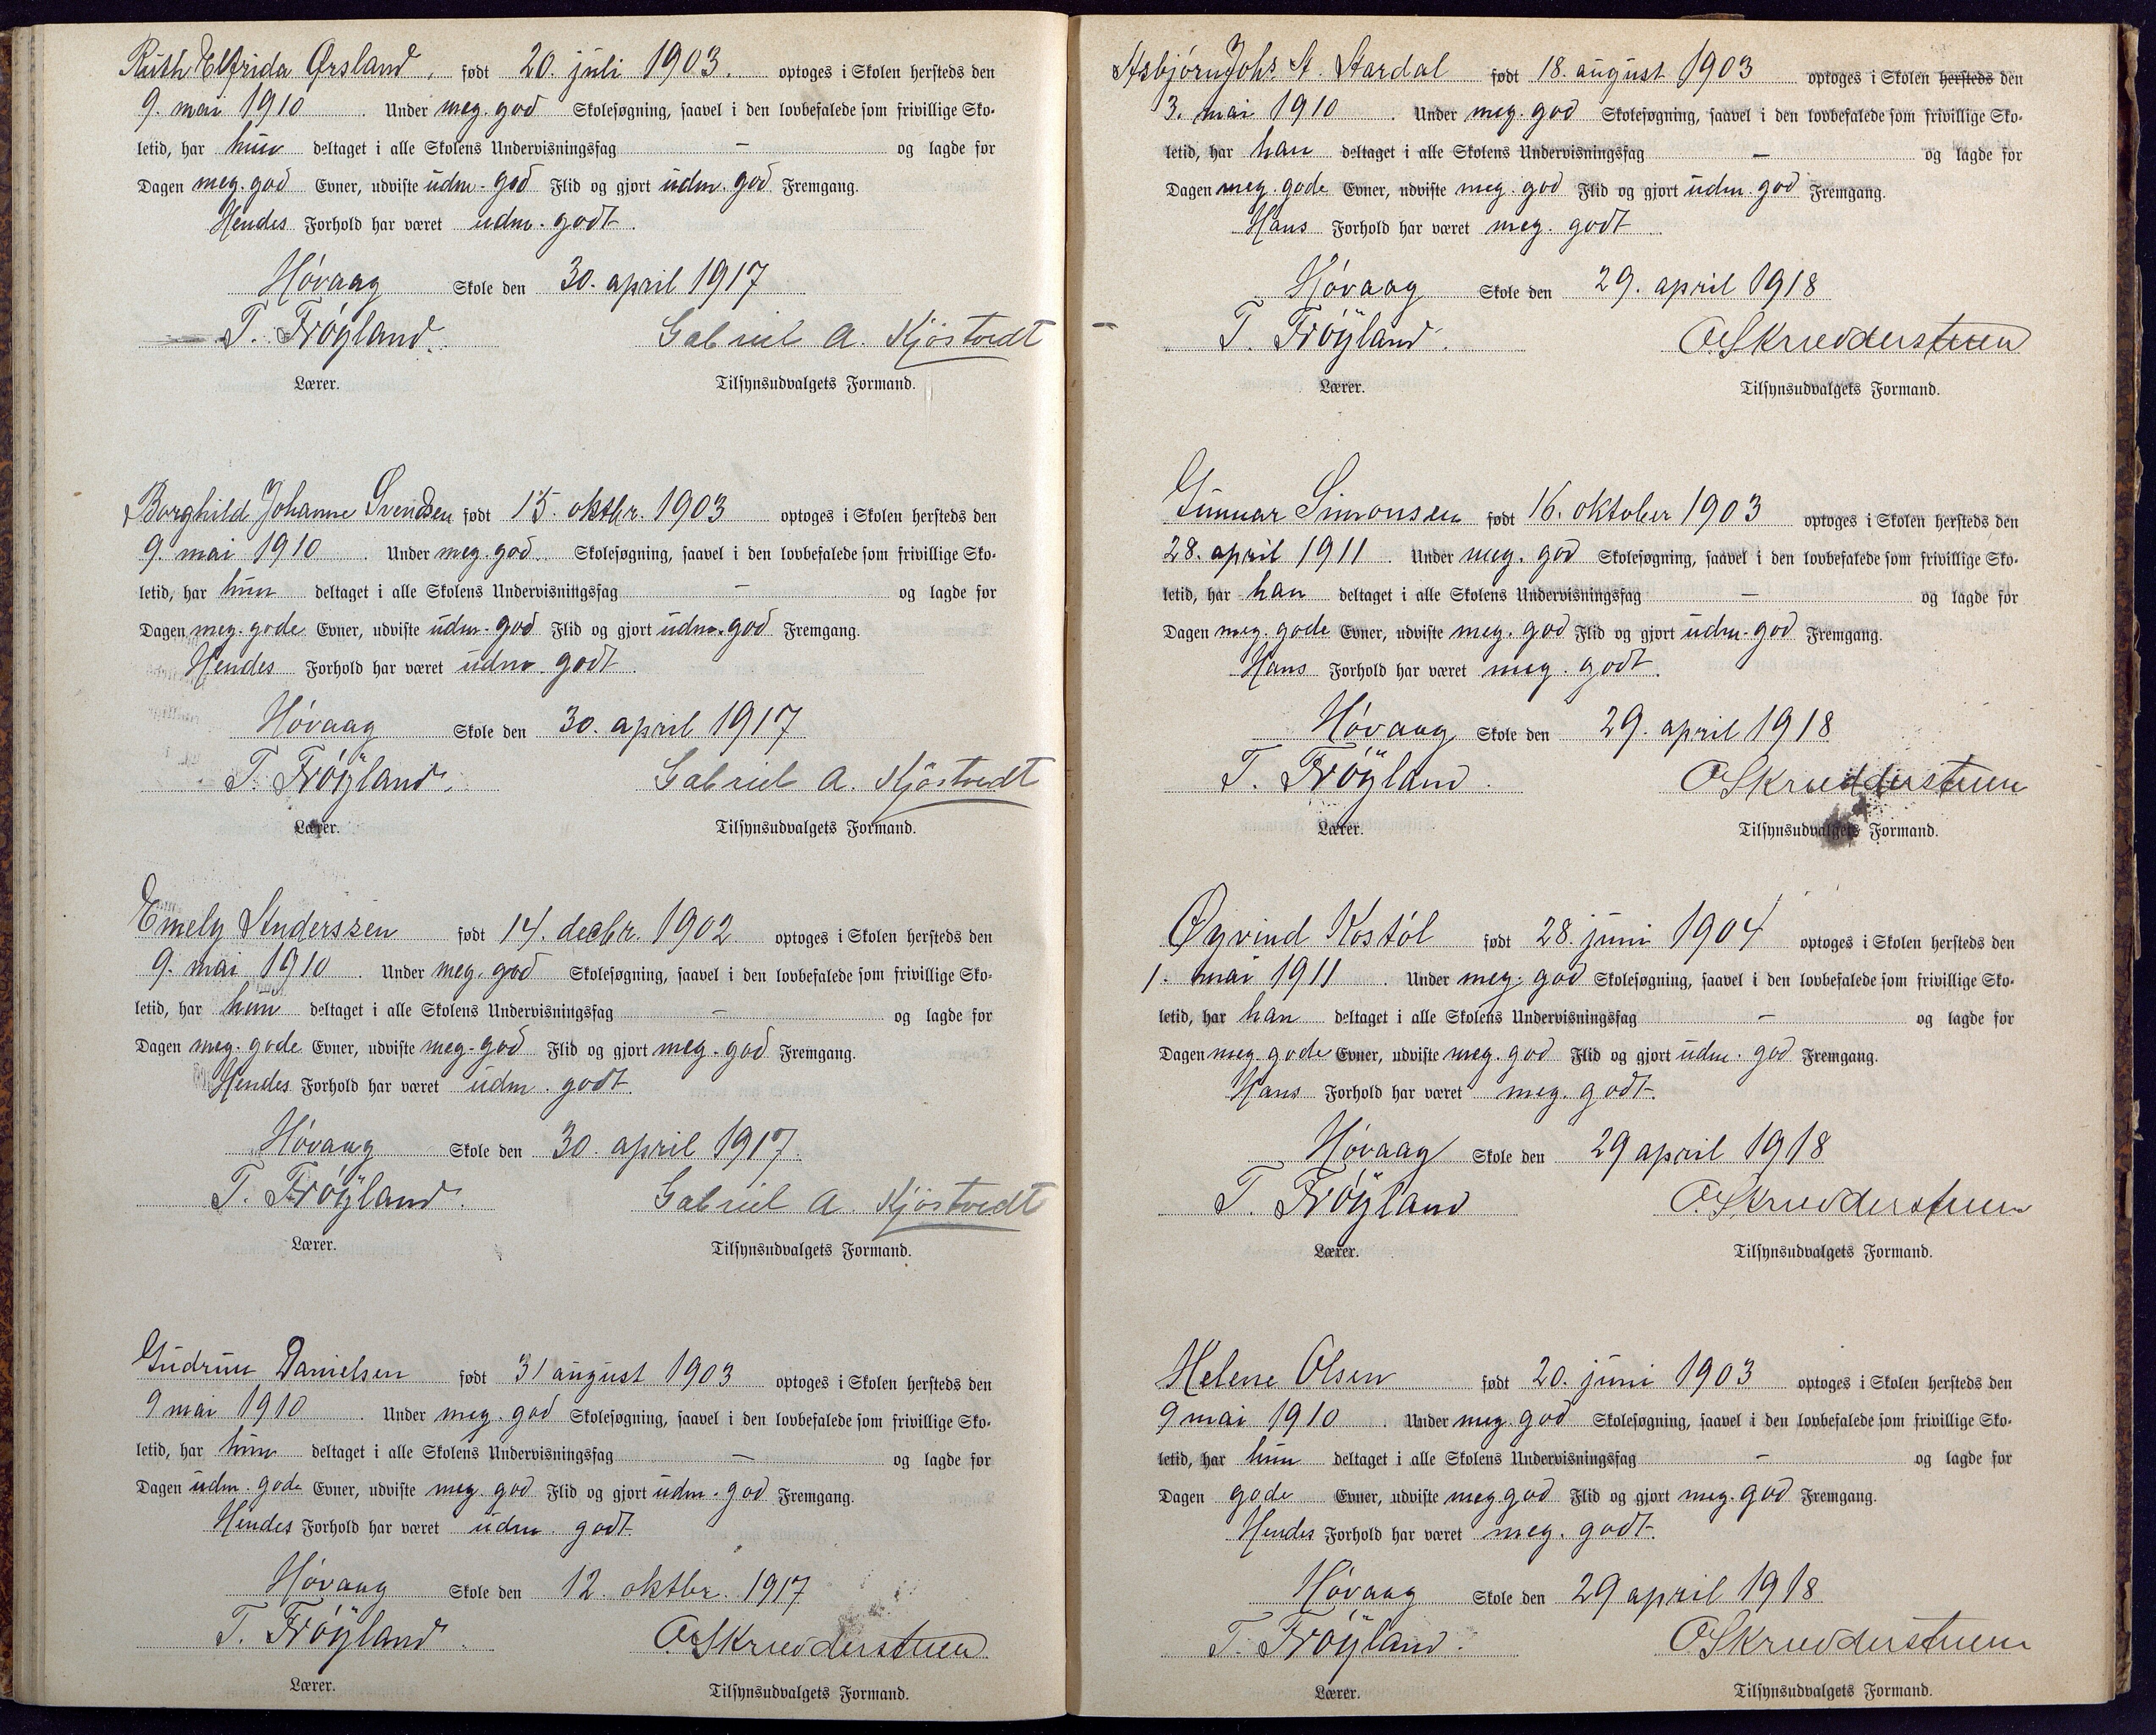 Ruth Elfrida Ørsland, født 20. juli 1903. optoges i Skolen hersteds den
9. mai 1910. Under meg. god Skolesøgning, saavel i den lovbefalede som frivillige Sko-
letid, har hun deltaget i alle Skolens Undervisningsfag – og lagde for
Dagen meg. god Evner, udviste udm. god Flid og gjort udm. god Fremgang.
Hendes Forhold har været udm. godt.
Høvaag Skole den 30. april 1917
T. Frøyland. Gabriel A. Kjøstvedt
Lærer. Tilsynsudvalgets Formand.
Borghild Johanne Svendsen født 15. oktbr. 1903 optoges i Skolen hersteds den
9. mai 1910. Under meg. god. Skolesøgning, saavel i den lovbefalede som frivillige Sko-
letid, har hun deltaget i alle Skolens Undervisningsfag – og lagde for
Dagen meg. gode Evner, udviste udm. god Flid og gjort udm. god Fremgang.
Hendes Forhold har været udm. godt.
Høvaag Skole den 30. april 1917
T. Frøyland. Gabriel A. Kjøstvedt
Lærer. Tilsynsudvalgets Formand.
Emely Anderssen født 14. decbr. 1902 optoges i Skolen hersteds den
9. mai 1910. Under meg. god Skolesøgning, saavel i den lovbefalede som frivillige Sko-
letid, har hun deltaget i alle Skolens Undervisningsfag – og lagde for
Dagen meg. gode Evner, udviste meg. god Flid og gjort meg. god Fremgang.
Hendes Forhold har været udm. godt.
Høvaag Skole den 30. april 1917.
T. Frøyland. Gabriel A. Kjøstvedt
Lærer. Tilsynsudvalgets Formand.
Gudrun Danielsen født 31 august 1903 optoges i Skolen hersteds den
9 mai 1910. Under meg. god Skolesøgning, saavel i den lovbefalede som frivillige Sko-
letid, har hun deltaget i alle Skolens Undervisningsfag – og lagde for
Dagen udm. gode Evner, udviste meg. god Flid og gjort udm. god Fremgang.
Hendes Forhold har været udm. godt
Høvaag Skole den 12. oktbr. 1917
T. Frøyland. O. Skrædderstuen
Lærer. Tilsynsudvalgets Formand.
Asbjørn Johs. A. Aardal født 18. august 1903 optoges i Skolen hersteds den
3. mai 1910. Under meg. god Skolesøgning, saavel i den lovbefalede som frivillige Sko-
letid, har han deltaget i alle Skolens Undervisningsfag – og lagde for
Dagen meg. gode Evner, udviste meg. god Flid og gjort udm. god Fremgang.
Hans Forhold har været meg. godt.
Høvaag Skole den 29. april 1918
T. Frøyland. O. Skrædderstuen
Lærer. Tilsynsudvalgets Formand.
Gunnar Simonsen født 16. oktober 1903 optoges i Skolen hersteds den
28. april 1911. Under meg. god Skolesøgning, saavel i den lovbefalede som frivillige Sko-
letid, har han deltaget i alle Skolens Undervisningsfag – og lagde for
Dagen meg. gode Evner, udviste meg. god Flid og gjort udm. god Fremgang.
Hans Forhold har været meg. godt.
Høvaag Skole den 29. april 1918
T. Frøyland. O. Skrædderstuen
Lærer. Tilsynsudvalgets Formand.
Øyvind Kostøl født 28. juni 1904 optoges i Skolen hersteds den
1. mai 1911. Under meg. god Skolesøgning, saavel i den lovbefalede som frivillige Sko-
letid, har han deltaget i alle Skolens Undervisningsfag – og lagde for
Dagen meg. gode Evner, udviste meg. god Flid og gjort udm. god Fremgang.
Hans Forhold har været meg. godt.
Høvaag Skole den 29 april 1918
T. Frøyland O. Skrædderstuen
Lærer. Tilsynsudvalgets Formand.
Helene Olsen født 20. juni 1903 optoges i Skolen hersteds den
9 mai 1910. Under meg. god Skolesøgning, saavel i den lovbefalede som frivillige Sko-
letid, har hun deltaget i alle Skolens Undervisningsfag – og lagde for
Dagen gode Evner, udviste meg god Flid og gjort meg. god Fremgang.
Hendes Forhold har været meg. godt.
Høvaag Skole den 29 april 1918
T. Frøyland. O. Skrædderstuen
Lærer. Tilsynsudvalgets Formand.